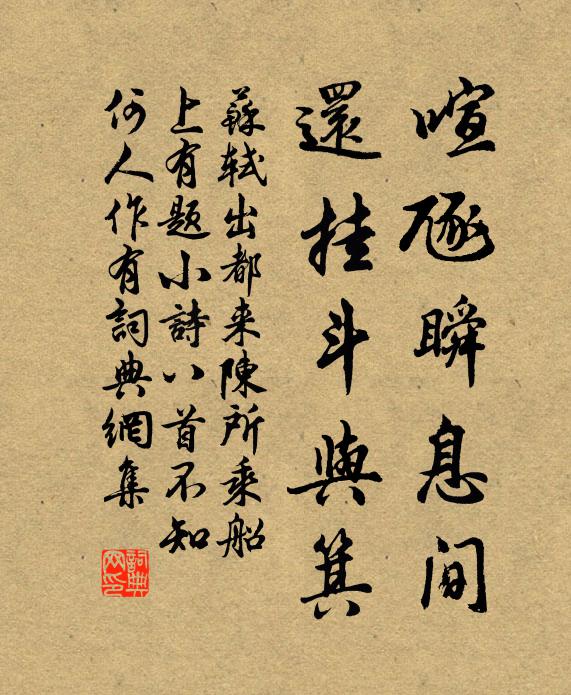 喧豗瞬息間
還挂斗與箕
蘇軾出都来陳所乘船
上有题小詩八首不知
何人作有詞典網集
詞典
网印